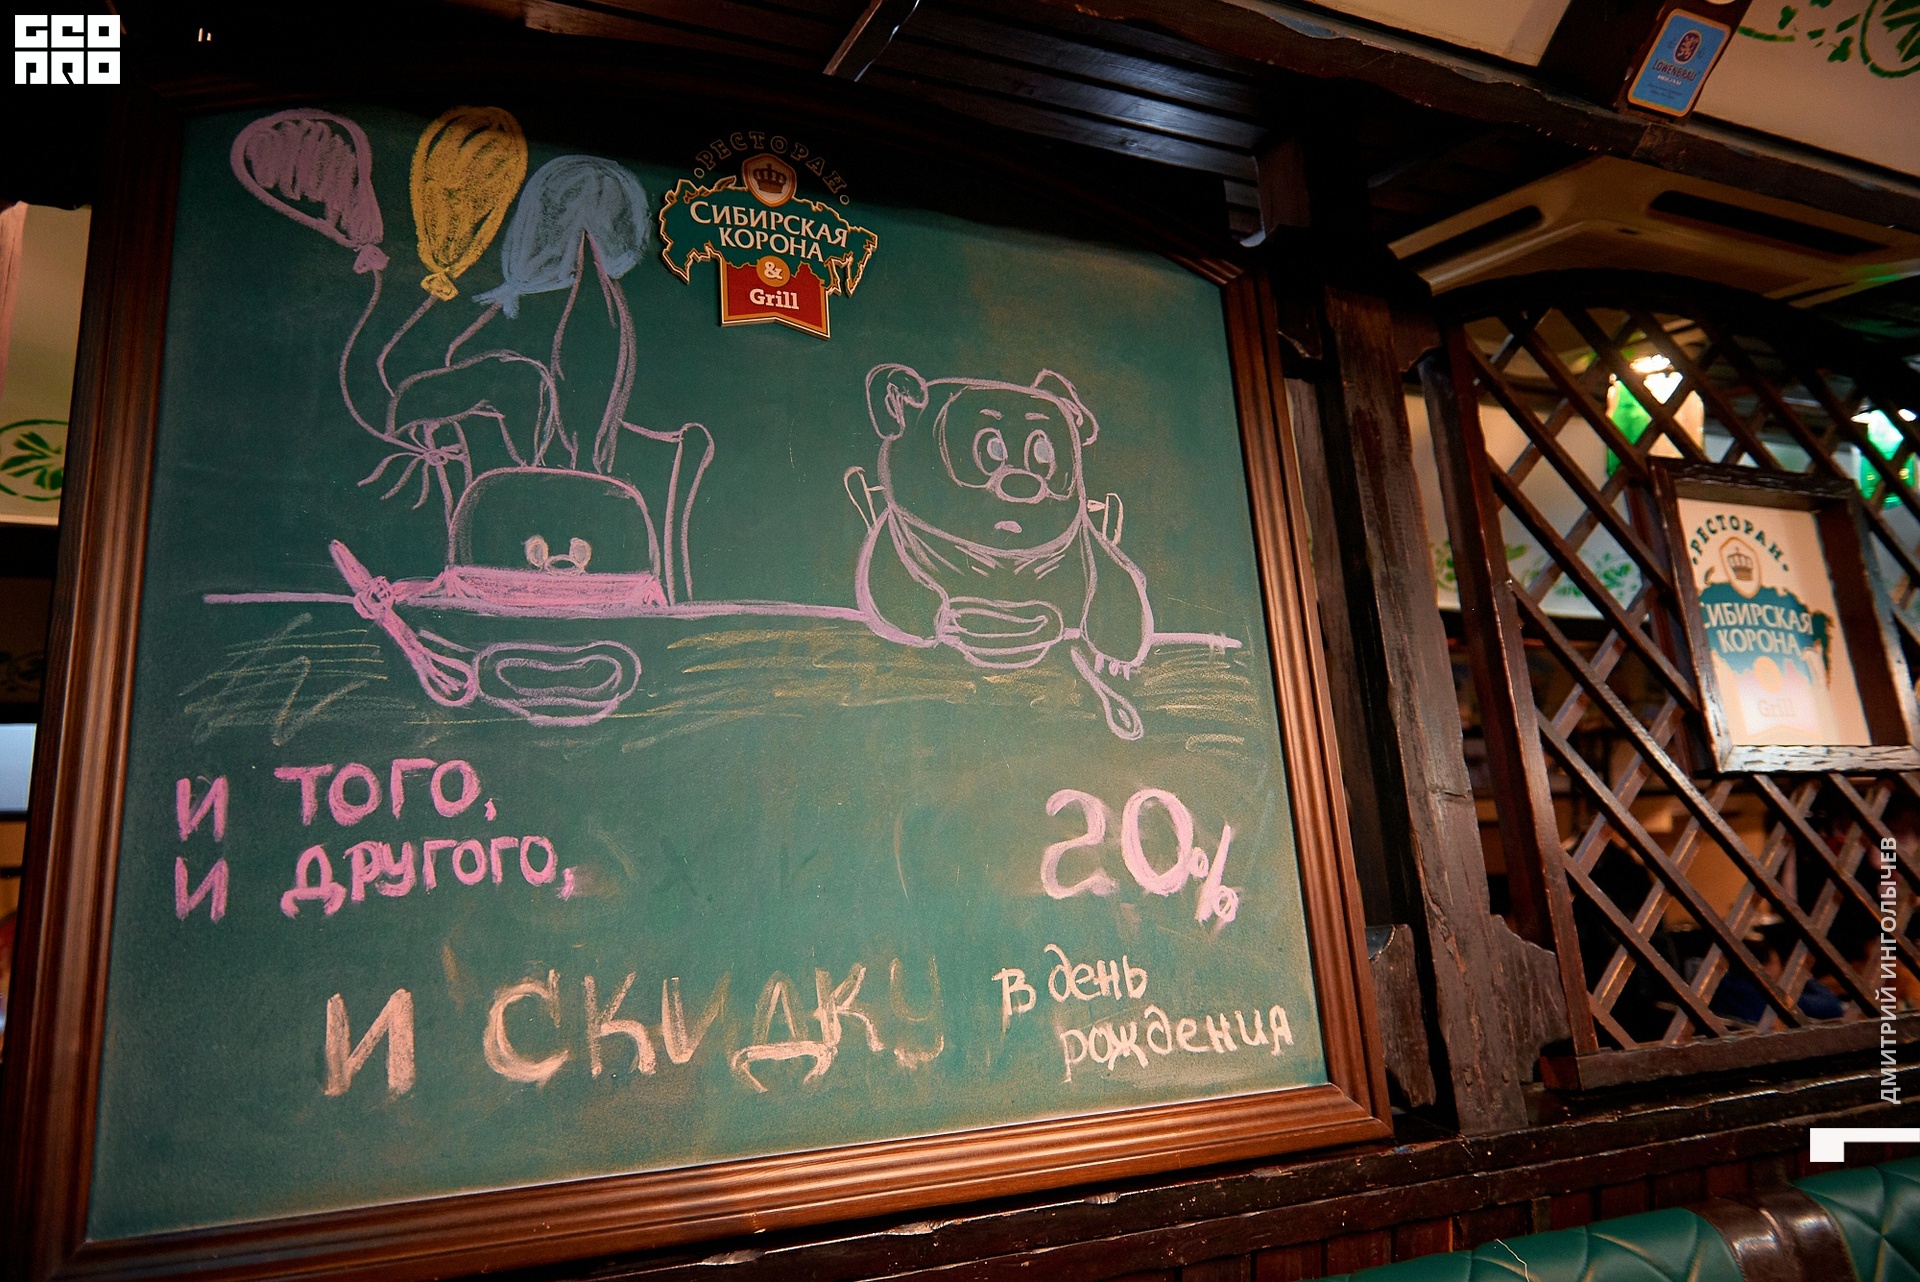 GEO
PRO
LÖWENBRÄU
РЕСТОРАН
СИБИРСКАЯ
КОРОНА
&
Grill
И ТОГО,
И ДРУГОГО,
20%
И СКИДКУ
в день
рождения
РЕСТОРАН
СИБИРСКАЯ
КОРОНА
Grill
ДМИТРИЙ ИНГОЛЫЧЕВ